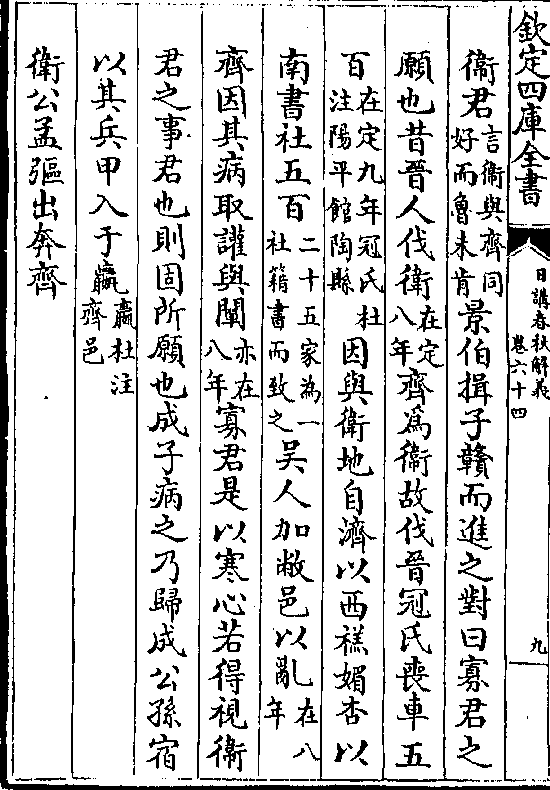 欽定四庫全書
日講春秋解義
卷六十四
九
衞君言衞與齊同好而魯未肯景伯揖子贛而進之對曰寡君之
願也昔晉人伐衛在定八年齊爲衞故伐晉冠氏喪車五
百在定九年冠氏杜注陽平館陶縣因與衛地自濟以西禚媚杏以
南書社五百二十五家為一社籍書而致之吳人加敝邑以亂在八年
齊因其病取讙與闡亦在八年寡君是以寒心若得視衛
君之事君也則固所願也成子病之乃歸成公孫宿
以其兵甲入于嬴嬴杜注齊邑
衛公孟彄出奔齊